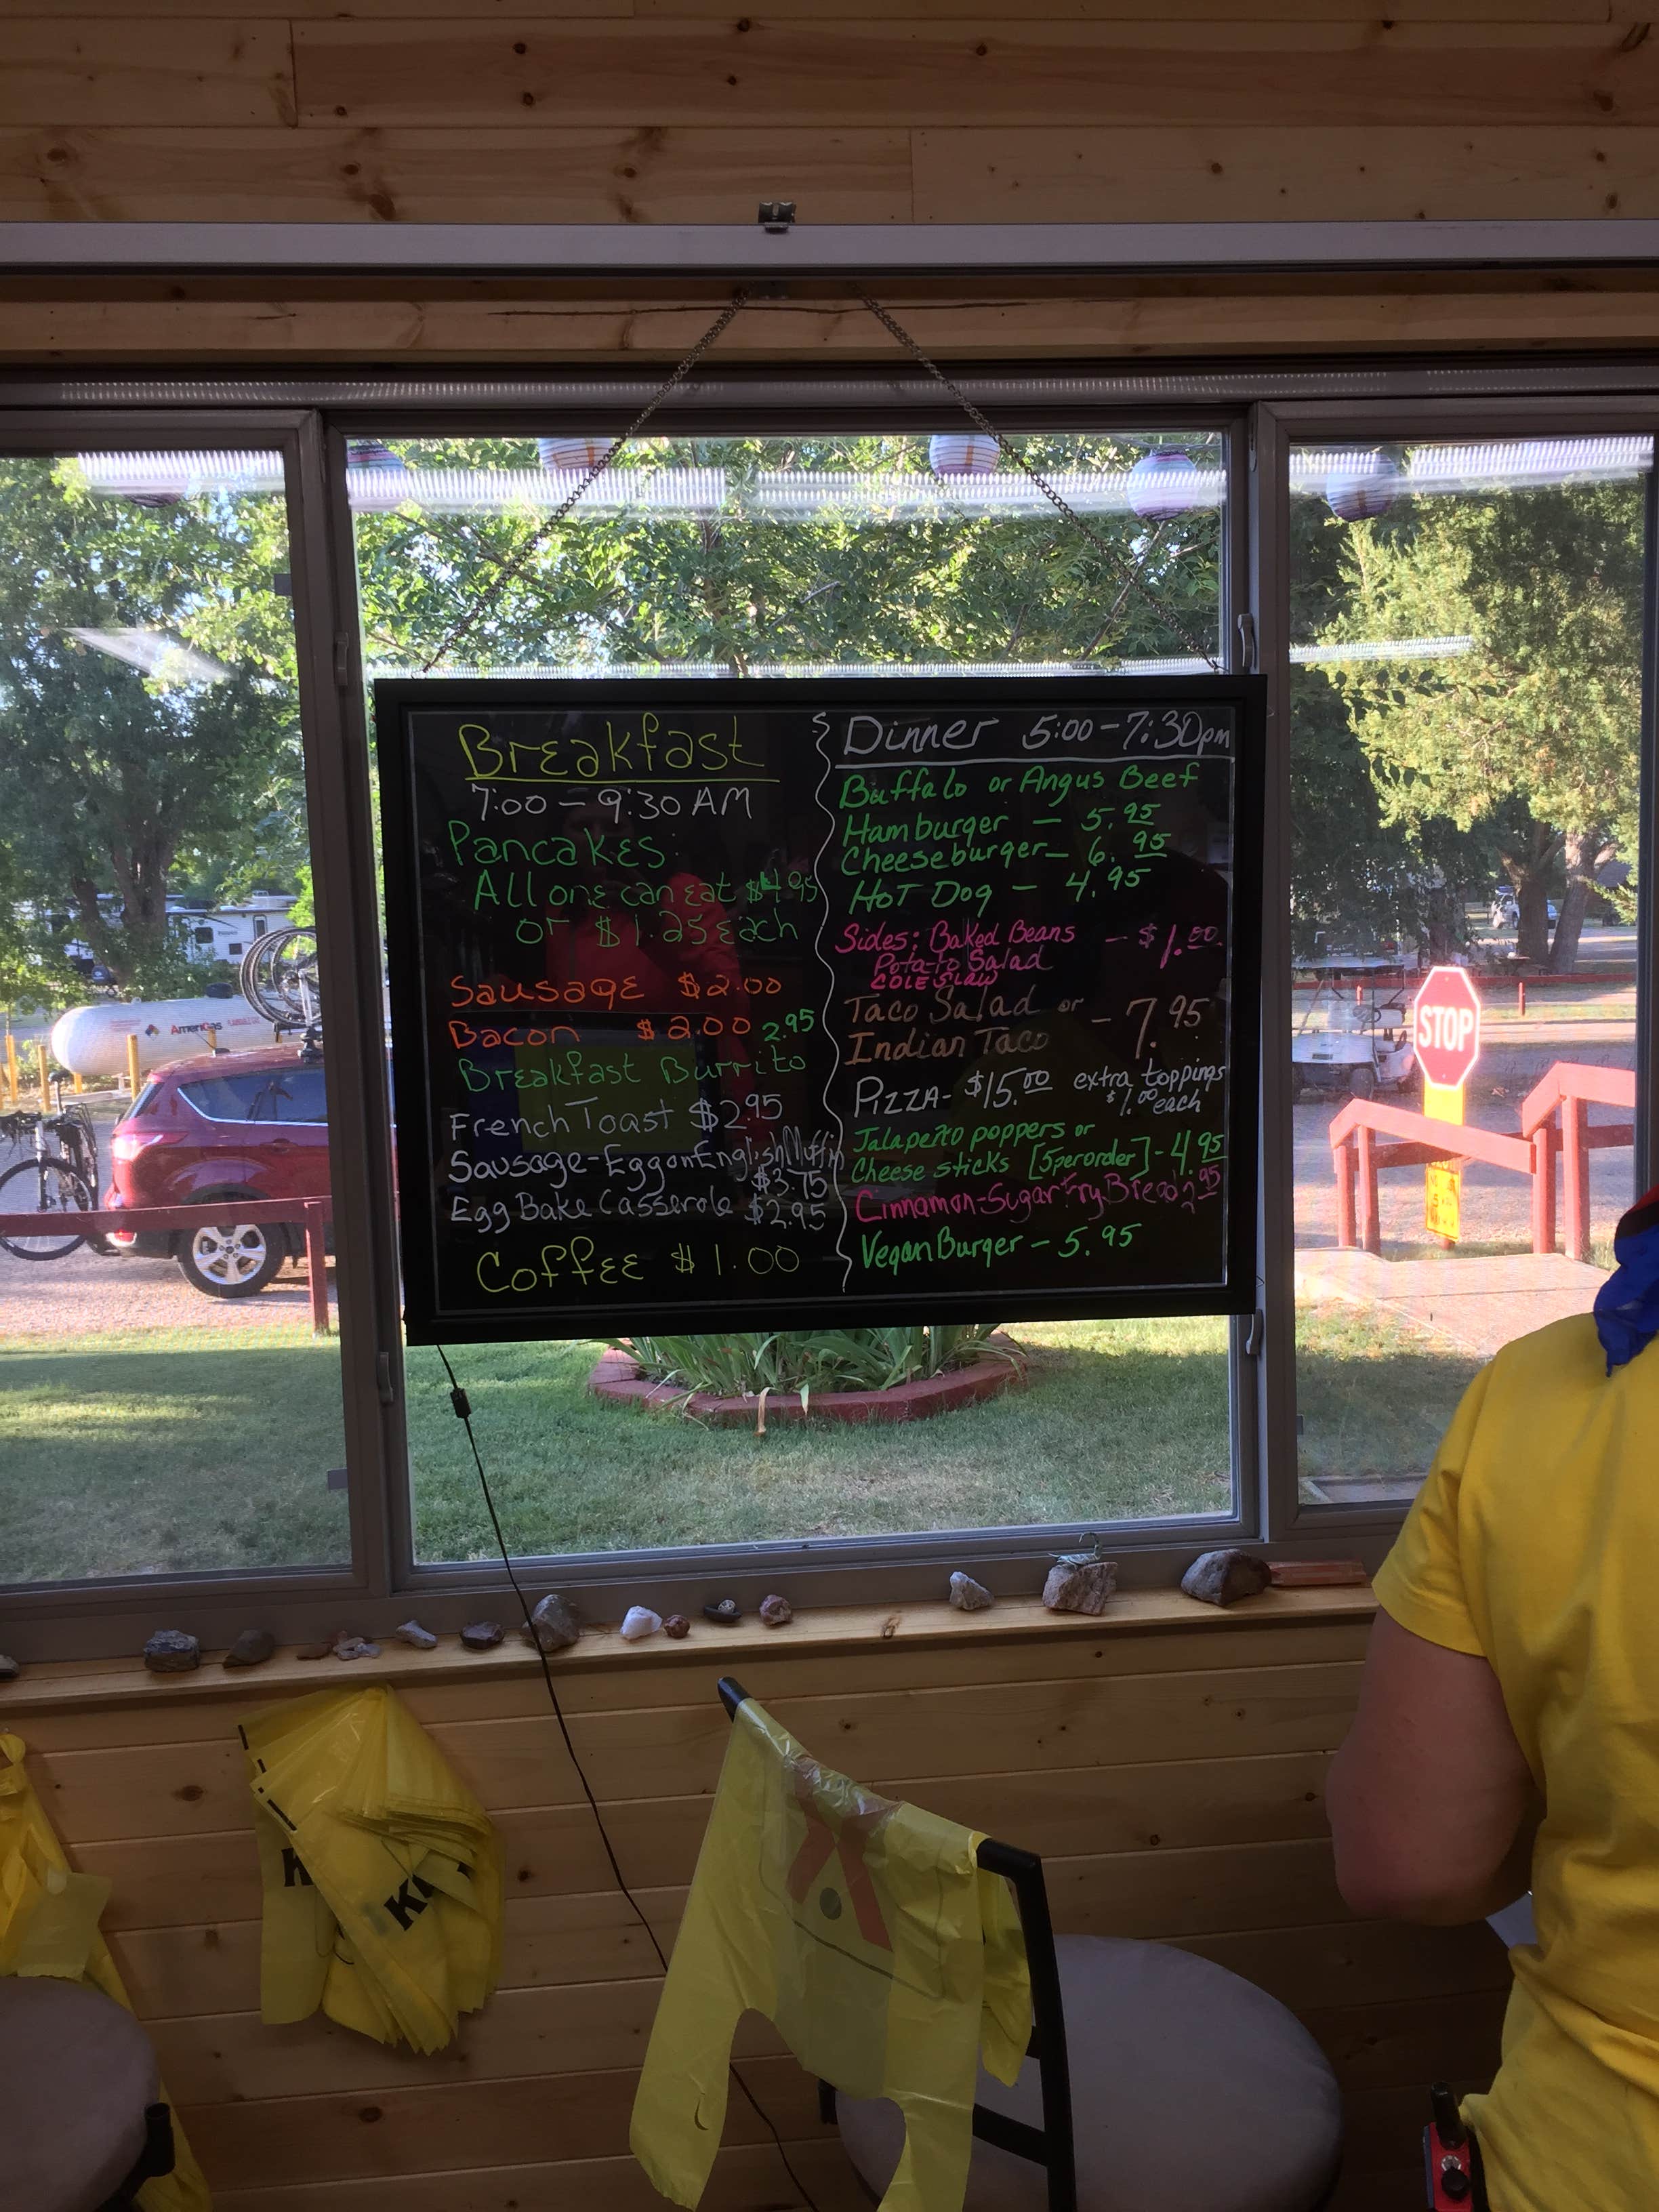 Breakfast
7:00 - 9:30 AM
Pancakes:
All one can eat $4.95
or $1.25 each
Sausage $2.00
Bacon $2.00
2.95
Breakfast Burrito
French Toast $2.95
Sausage-Egg on English Muffin
$3.75
Egg Bake Casserole $2.95
Coffee $1.00
Dinner 5:00-7:30pm
Buffalo or Angus Beef
Hamburger - 5.95
Cheeseburger - 6.95
Hot Dog - 4.95
Sides: Baked Beans - $1.00
Potato Salad
COLESLAW
Taco Salad or
Indian Taco - 7.95
Pizza - $15.00 extra toppings
$1.00 each
Jalapeño poppers or
Cheese sticks [5 per order] - 4.95
Cinnamon-Sugar Fry Bread 2.95
Vegan Burger - 5.95
AmeriGas
STOP